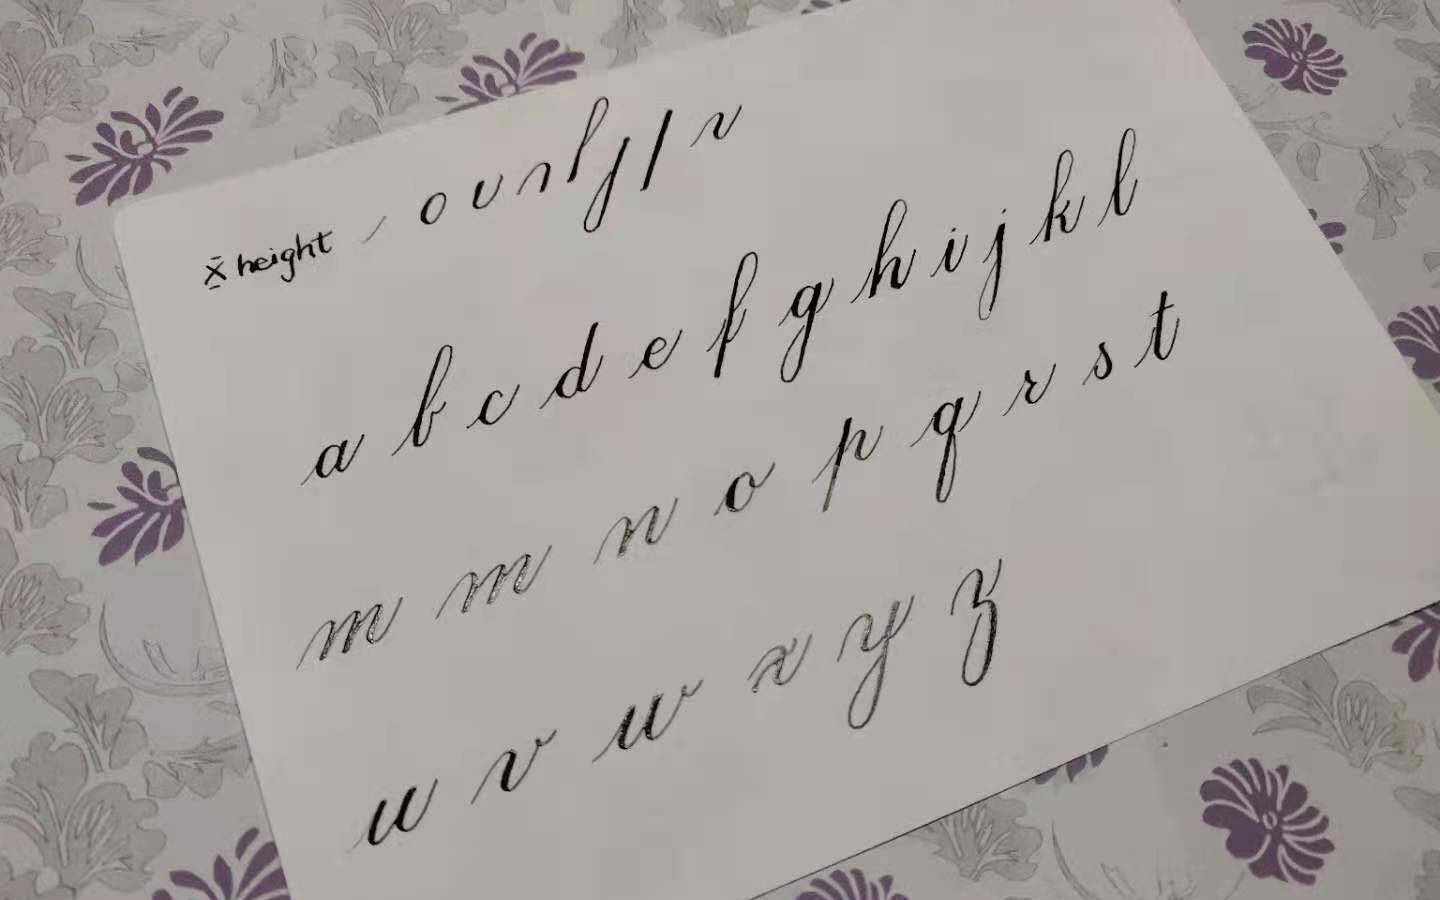 x height
a b c d e f g h i j k l
m m n o p q r s t
u v w x y z